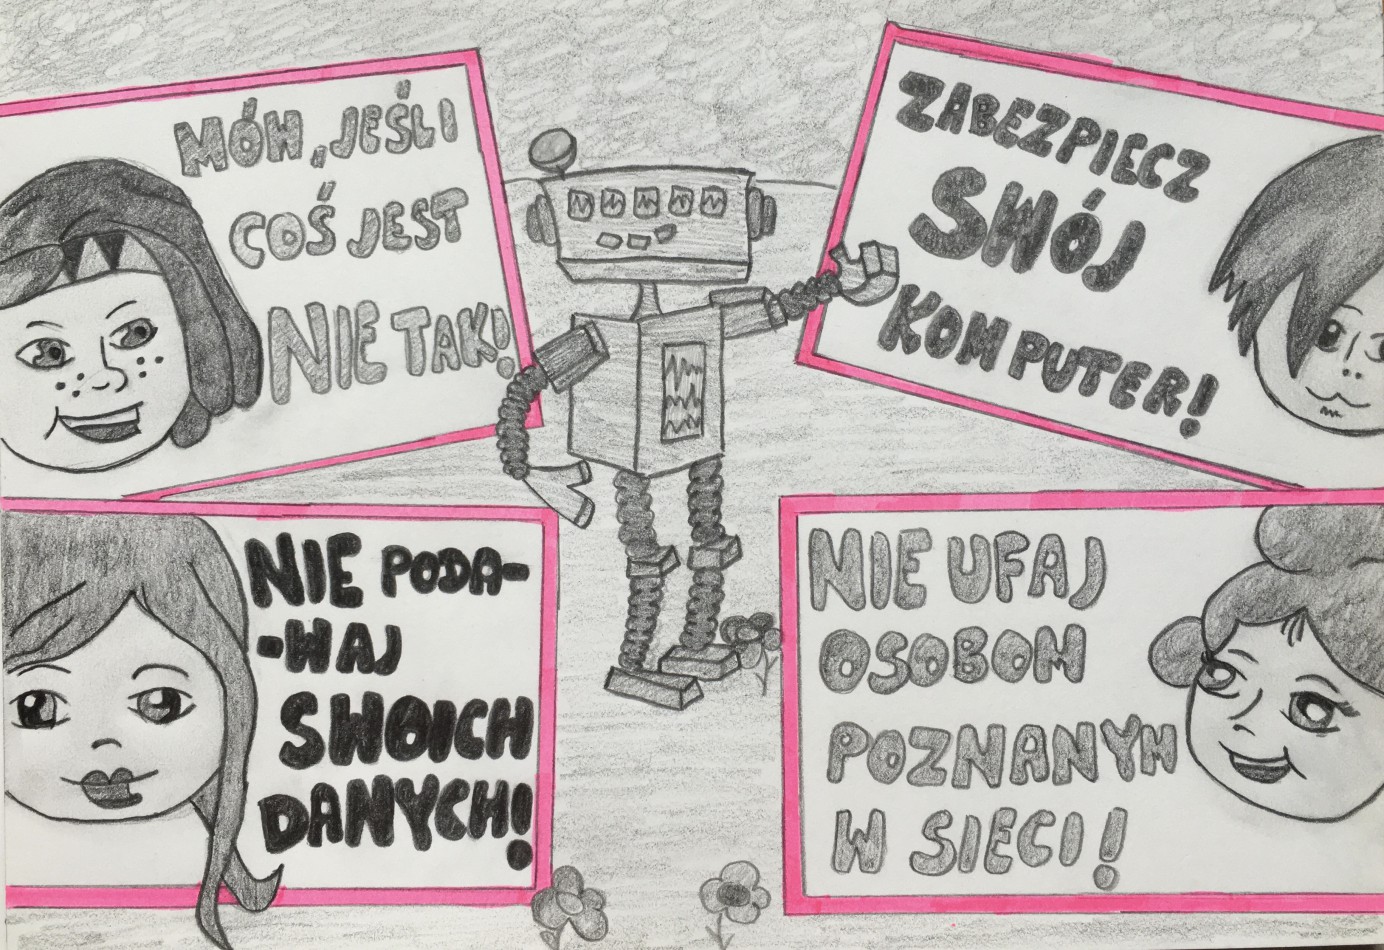 MÓW, JEŚLI
COŚ JEST
NIE TAK!
ZABEZPIECZ
SWÓJ
KOMPUTER!
NIE PODA-
-WAJ
SWOICH
DANYCH!
NIE UFAJ
OSOBOM
POZNANYM
W SIECI!